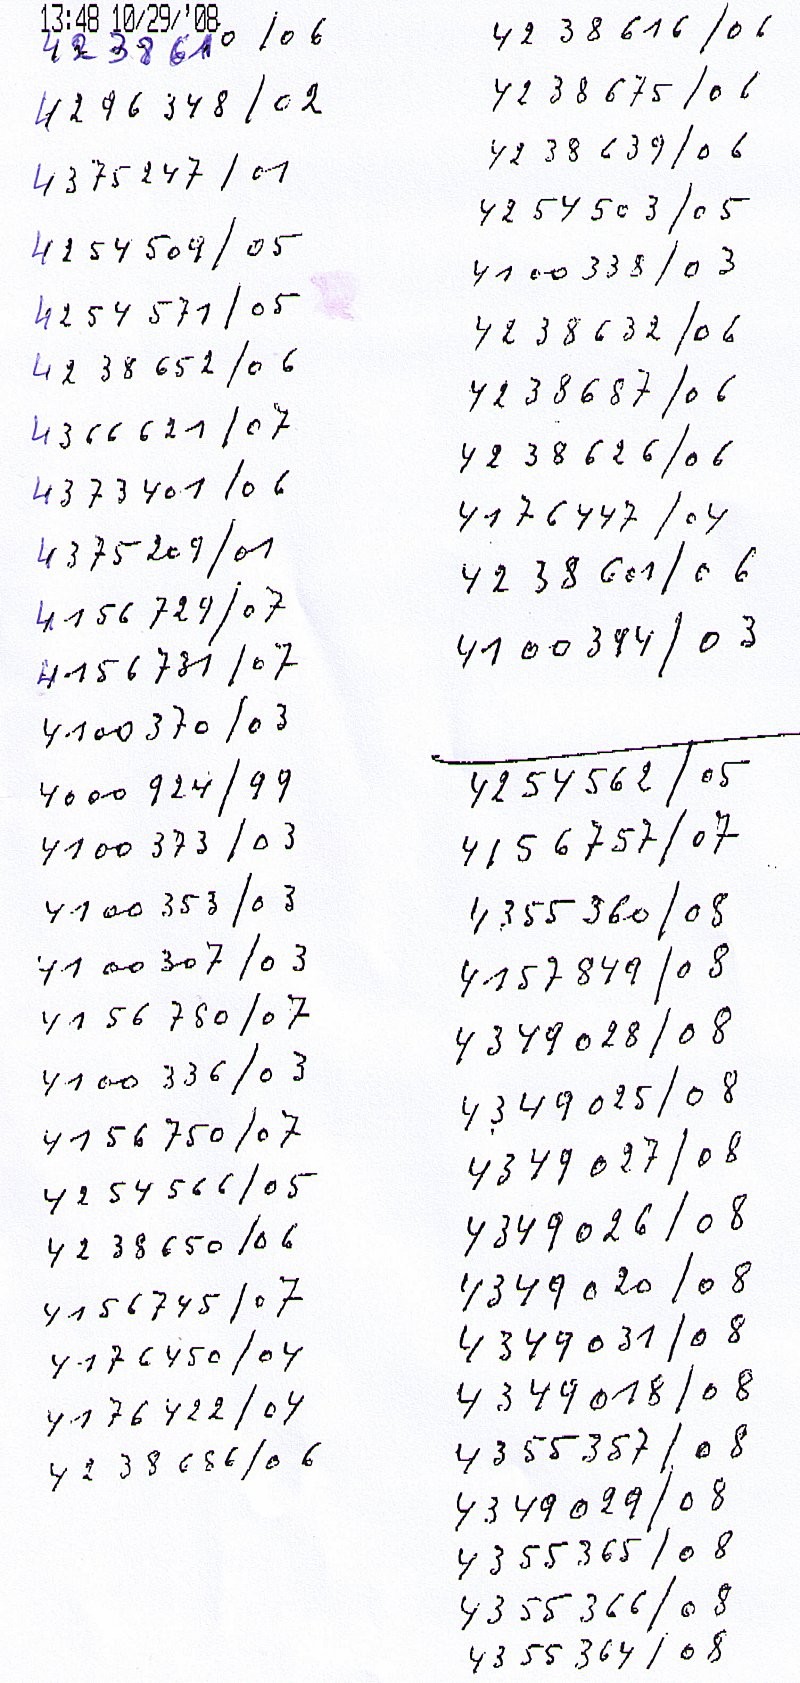 13:48 10/29/'08
4238610/06
4296348/02
4375247/01
4254509/05
4254571/05
4238652/06
4366621/07
4373401/06
4375209/01
4156729/07
4156731/07
4100370/03
4000924/99
4100373/03
4100353/03
4100307/03
4156780/07
4100336/03
4156750/07
4254566/05
4238650/06
4156745/07
4176450/04
4176422/04
4238686/06
4238616/06
4238675/06
4238639/06
4254503/05
4100338/03
4238632/06
4238687/06
4238626/06
4176447/04
4238601/06
4100394/03
4254562/05
4156757/07
4355360/08
4157849/08
4349028/08
4349025/08
4349027/08
4349026/08
4349020/08
4349031/08
4349018/08
4355357/08
4349029/08
4355365/08
4355366/08
4355364/08